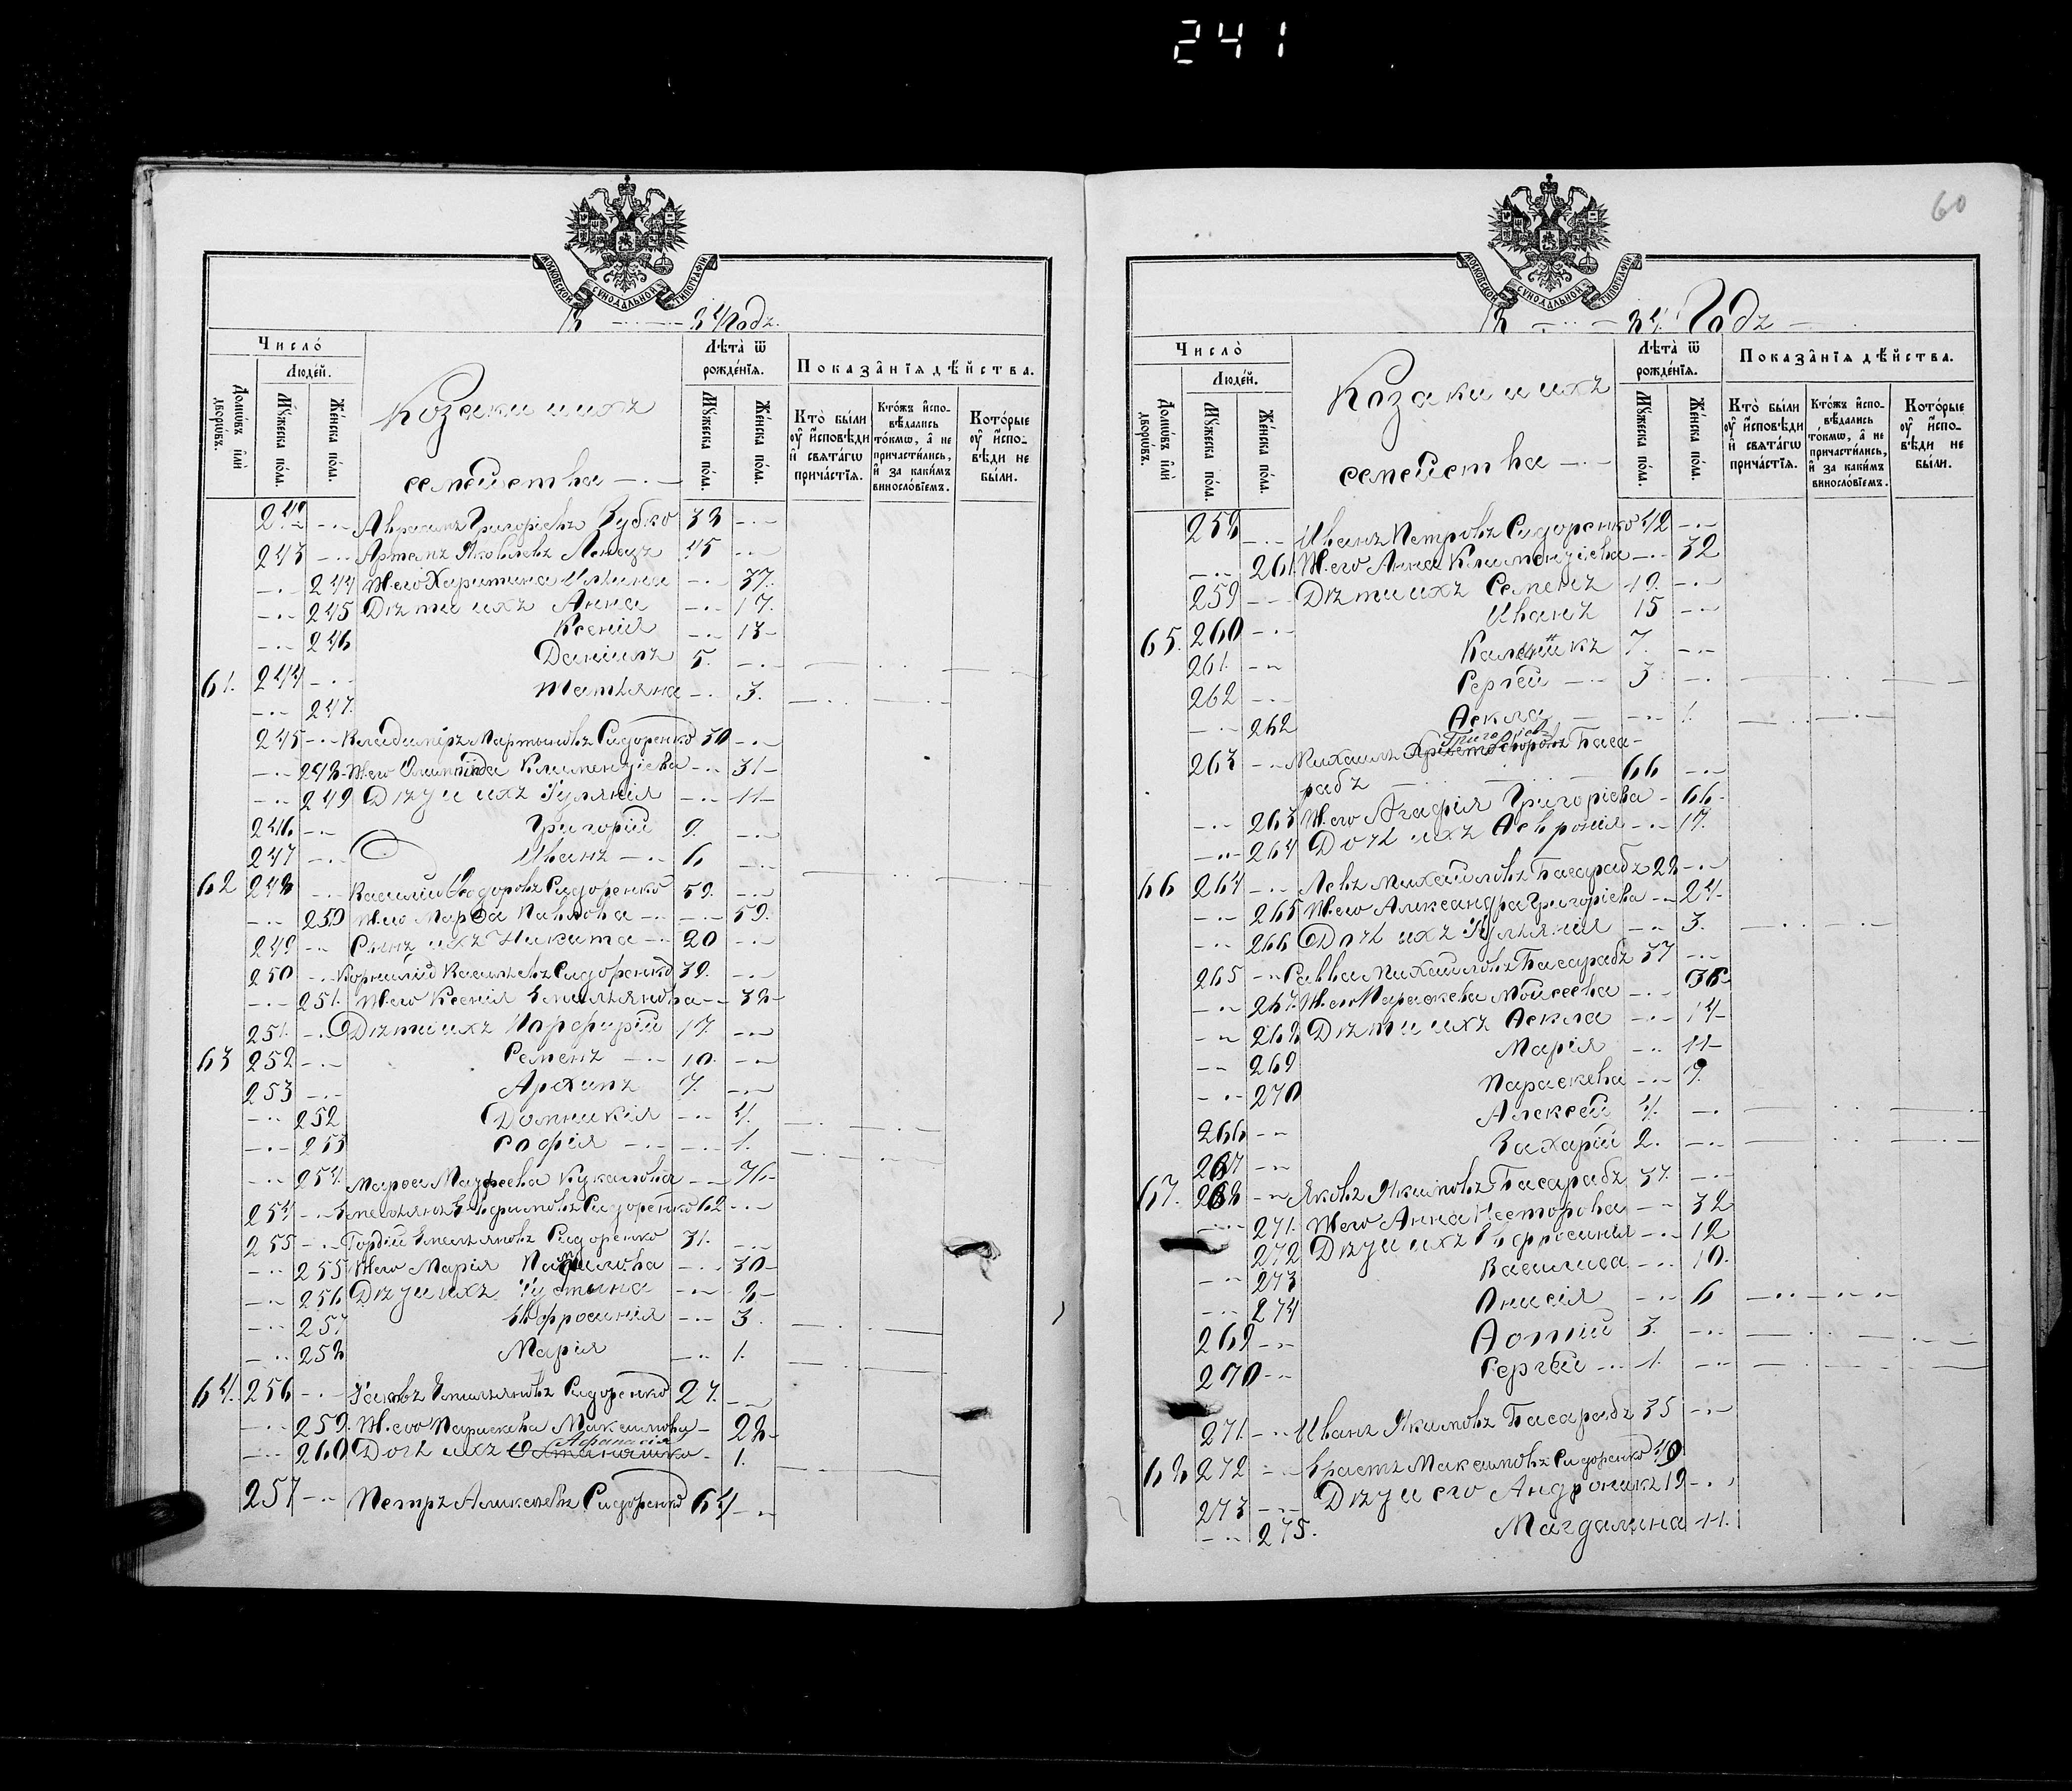 241
60
МОСКОВСКОЙ СѴНОДАЛЬНОЙ ТИПОГРАФІИ
18 84 Годъ.
Число̀
Людéй.
Домѡ́въ и҆лѝ дворѡ́въ.
Мꙋ́жеска по́ла.
Же́нска по́ла.
Козаки и ихъ
семейства
Лѣта̀ ѿ рожде́нїѧ.
Мꙋ́жеска по́ла.
Же́нска по́ла.
Показа̑нїѧ дѣ́йства.
Кто̀ бы́ли ᲂу҆ и҆сповѣди и҆ свята́гѡ прича́стїѧ.
Кто́жъ и҆спо- вѣдались то́кмѡ, а҆ не причасти́лись, и҆ за каки́мъ винословїемъ.
Кото́рые ᲂу҆ и҆спо- вѣди не бы́ли.
242 Аврамъ Григорьевъ Зубко 33
243 Артемъ Яковлевъ 45
244 Ж. его Харитина 37.
245 Дѣти ихъ Анна 17.
246 Ксенія 13
61. 244 Даніилъ 5.
247. Татьяна 3.
245 Владиміръ Мартыновъ Сидоренко 30
248 Ж. его Олимпіада Климентіева 31
249 Дѣти ихъ Іуліанія 11
246 Григорій 9.
247 Иванъ 6
62 248 Василій Ѳедоровъ Сидоренко 59.
250 Ж. его Марѳа Павлова 59.
249 Сынъ ихъ Никита 20
250 Корнилій Васильевъ Сидоренко 39.
251. Ж. его Ксенія Емильянова 38
251. Дѣти ихъ Порфирій 17.
63 252 Семенъ 10.
253 Архипъ 7.
252 Домникія 4.
253 Софія 1.
254. Марѳа Матѳеева 76
254 Емельянъ Евфимовъ Сидоренко 62
255 Гордій Емельяновъ Сидоренко 31.
255 Ж. его Марія 30
256 Дѣти ихъ Іустина 8
257 Евфросинія 3.
258 Марія 1.
64. 256 Іаковъ Емильяновъ Сидоренко 27.
259. Ж. его Параскева Максимова 22
260 Дочь ихъ Афанасія 1.
257 Петръ Алексѣевъ Сидоренко 64
МОСКОВСКОЙ СѴНОДАЛЬНОЙ ТИПОГРАФІИ
18 84. Годъ
Число̀
Людéй.
Домѡ́въ и҆лѝ дворѡ́въ.
Мꙋ́жеска по́ла.
Же́нска по́ла.
Козаки и ихъ
семейства
Лѣта̀ ѿ рожде́нїѧ.
Мꙋ́жеска по́ла.
Же́нска по́ла.
Показа̑нїѧ дѣ́йства.
Кто̀ бы́ли ᲂу҆ и҆сповѣди и҆ свята́гѡ прича́стїѧ.
Кто́жъ и҆спо- вѣдались то́кмѡ, а҆ не причасти́лись, и҆ за каки́мъ винословїемъ.
Кото́рые ᲂу҆ и҆спо- вѣди не бы́ли.
258 Иванъ Петровъ Сидоренко 42
261. Ж. его Анна Климентіева 32
259 Дѣти ихъ Семенъ 19.
65. 260 Иванъ 15
261. Калиникъ 7.
262 Сергѣй 3
262 Аекла 1.
263 Михаилъ Григорьев Баса-
рабъ 66
263 Ж. его Агафія Григоріева 66
264 Дочь ихъ Ѳевронія 17.
66 264 Левъ Михайловъ Басарабъ 28
265 Ж. его Александра Григоріева 24
266 Дочь ихъ Іуліанія 3.
265 Савва Михайловъ Басарабъ 37
267. Ж. его Параскева Моѵсеева 36
268 Дѣти ихъ Ѳекла 14
269 Марія 11
270 Параскева 9.
266 Алексѣй 4.
267 Захарій 2.
67. 268 Яковъ Якимовъ Басарабъ 37.
271. Ж. его Анна Несторова 32
272 Дѣти ихъ Евфросинія 12
273 Василиса 10.
274 Анисія 6
269 3.
270 Сергѣй 1.
271. Иванъ Якимовъ Басарабъ 35
68 272 Ерастъ Максимовъ Сидоренко 40
273 Дѣти его Андроникъ 19
275. Магдалина 11.